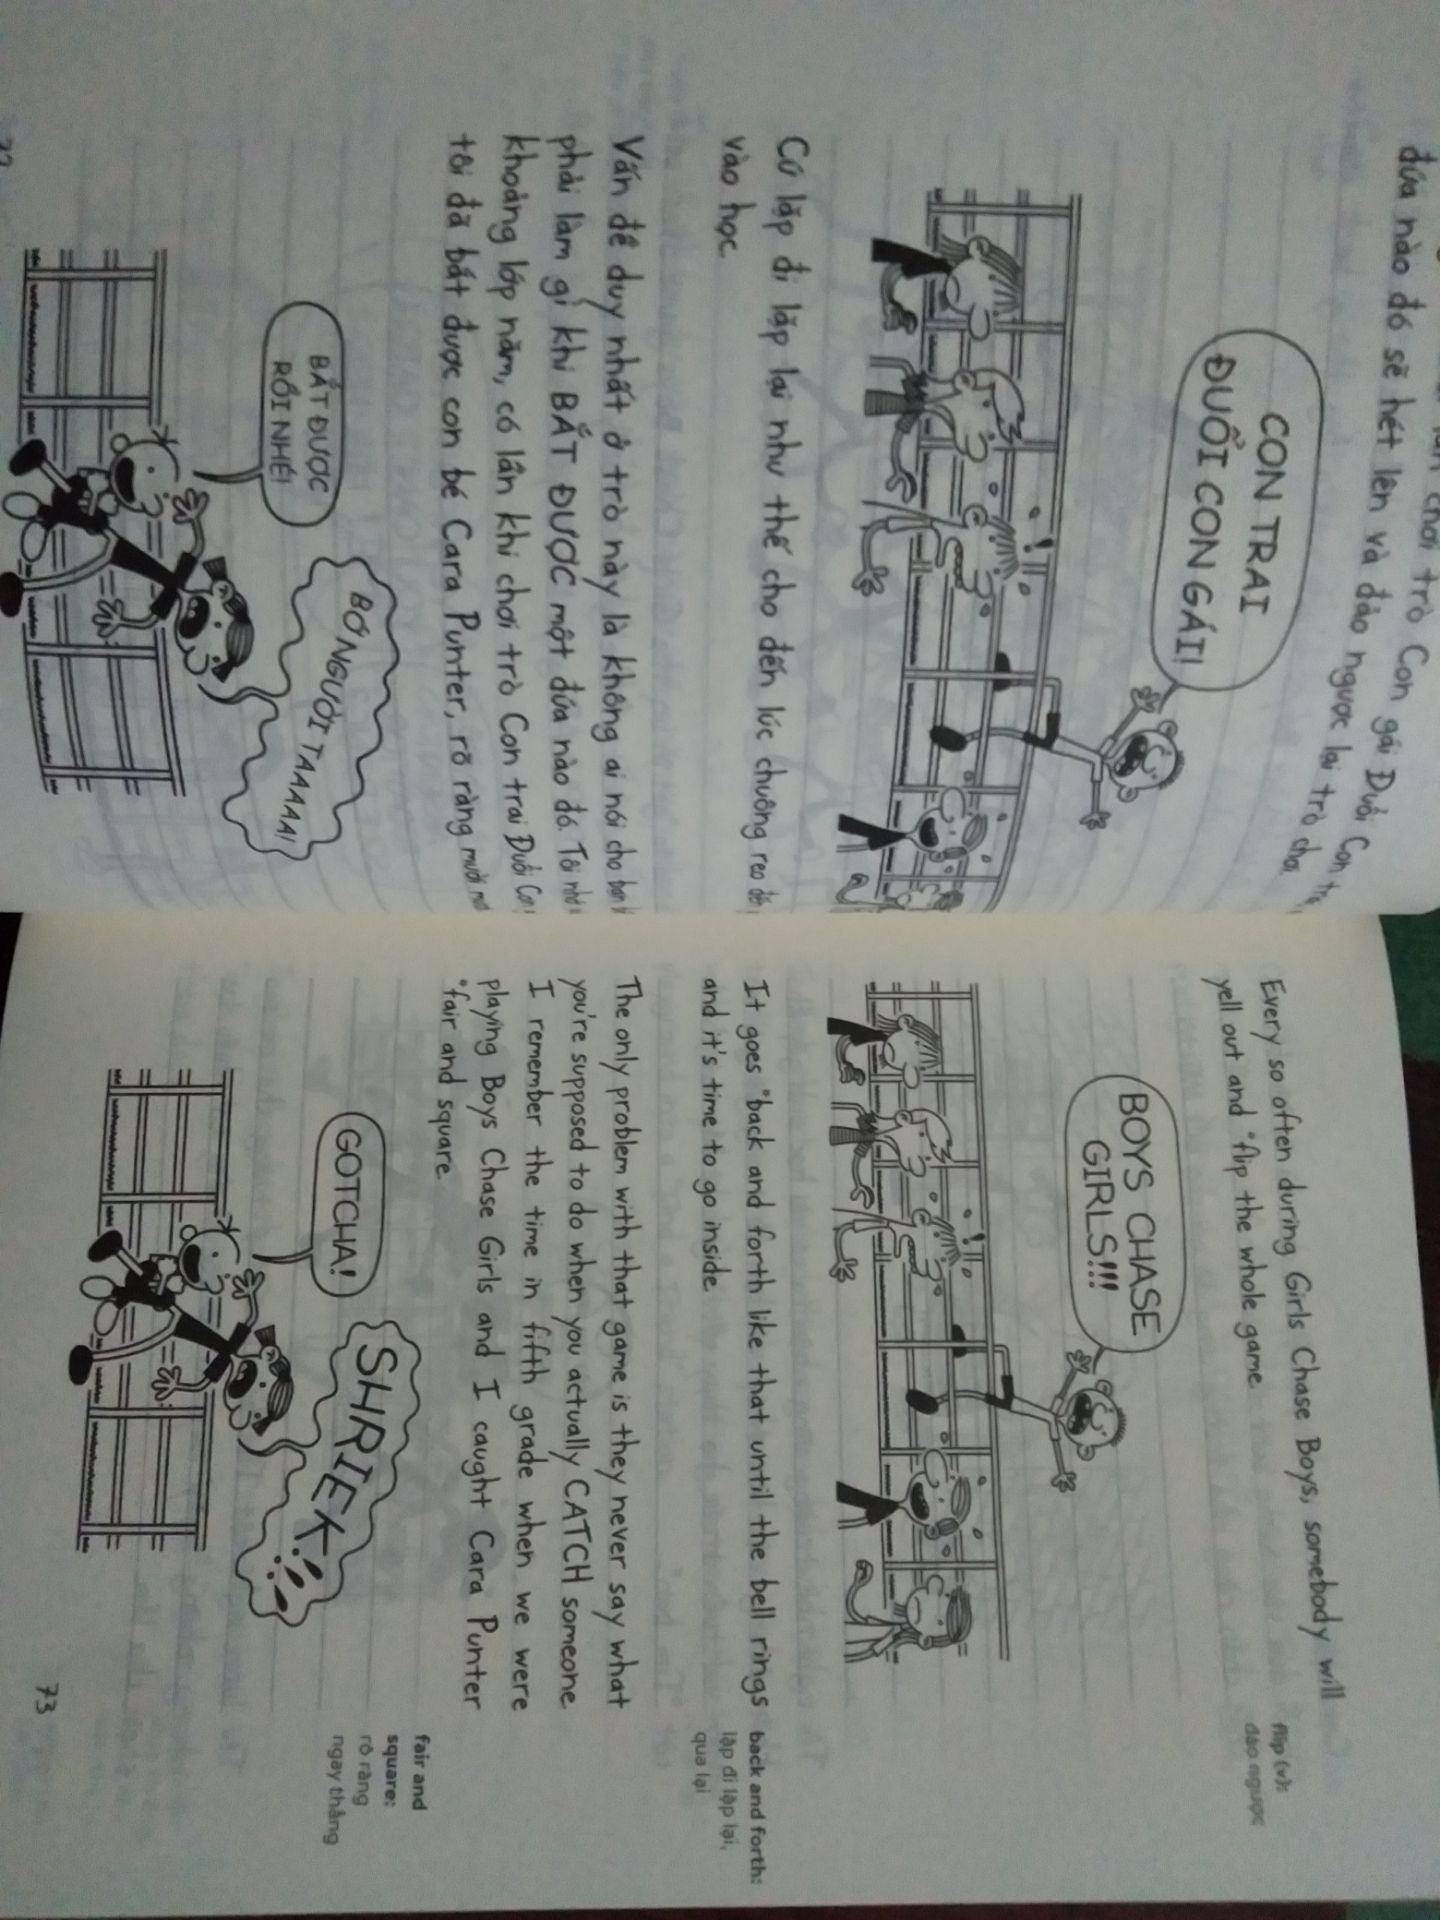 chơi trò Con gái Đuổi Con
đứa nào đó sẽ hét lên và đảo ngược lại trò chơi.
CON TRAI
ĐUỔI CON GÁI!
Cứ lặp đi lặp lại như thế cho đến lúc chuông reo
vào học.
Vấn đề duy nhất ở trò này là không ai nói cho bạn
phải làm gì khi BẮT ĐƯỢC một đứa nào đó. Tôi nhớ
khoảng lớp năm, có lần khi chơi trò Con trai Đuổi Con
tôi đã bắt được con bé Cara Punter, rõ ràng mười
BẮT ĐƯỢC
RỒI NHÉ!
BỚ NGƯỜI TAAAAA!
Every so often during Girls Chase Boys, somebody will
yell out and *flip the whole game.
BOYS CHASE
GIRLS!!!
It goes *back and forth like that until the bell rings
and it's time to go inside.
The only problem with that game is they never say what
you're supposed to do when you actually CATCH someone.
I remember the time in fifth grade when we were
playing Boys Chase Girls and I caught Cara Punter
*fair and square.
GOTCHA!
SHRIEK!!!
flip (v):
đảo ngược
back and forth:
lặp đi lặp lại,
qua lại
fair and
square:
rõ ràng
ngay thẳng
73